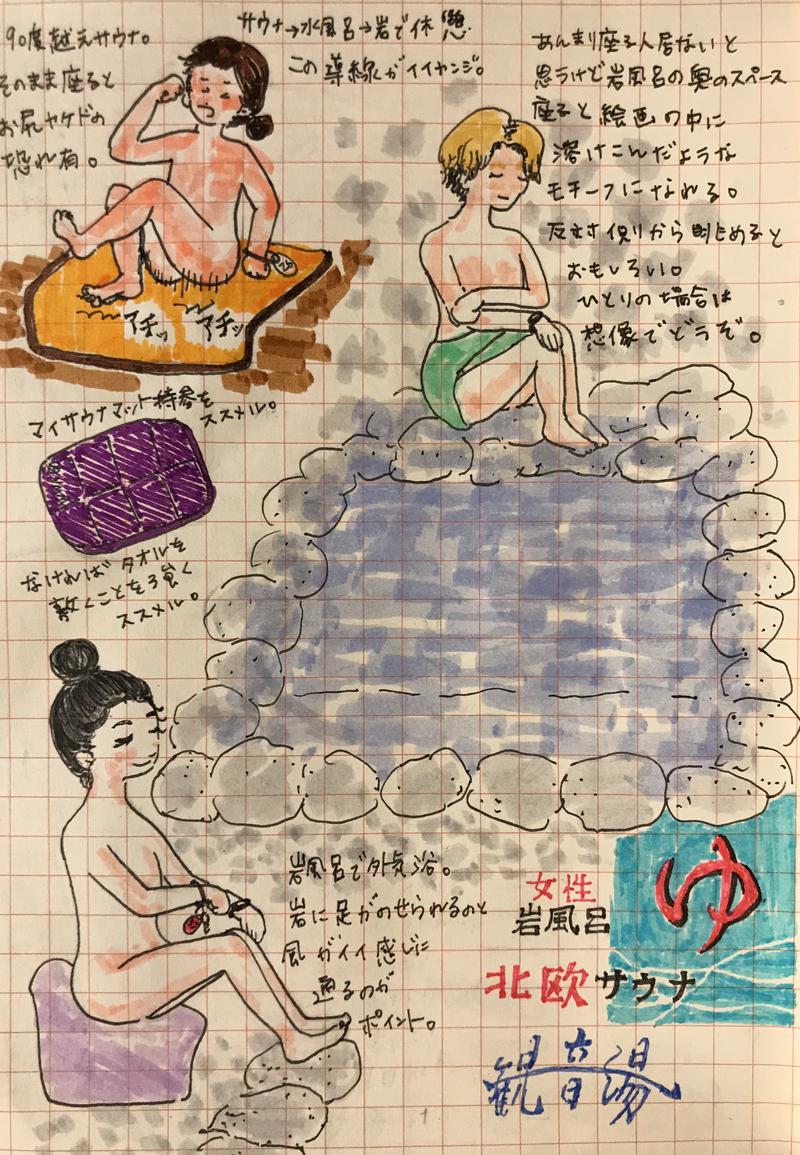 90度越えサウナ。
そのまま座ると
お尻ヤケドの
恐れ有。
サウナ→水風呂→岩で休憩
この導線がイイヤンジ。
あんまり座る人居ないと
思うけど岩風呂の奥のスペース
座ると絵画の中に
溶けこんだような
モチーフになれる。
反対側から眺めると
おもしろい。
ひとりの場合は
想像でどうぞ。
アチッ アチッ
マイサウナマット持参を
ススメル。
なければタオルを
敷くことを強く
ススメル。
岩風呂で外気浴。
岩に足がのせられるのと
風がイイ感じに
通るのが
ポイント。
女性
岩風呂
ゆ
北欧サウナ
観音湯